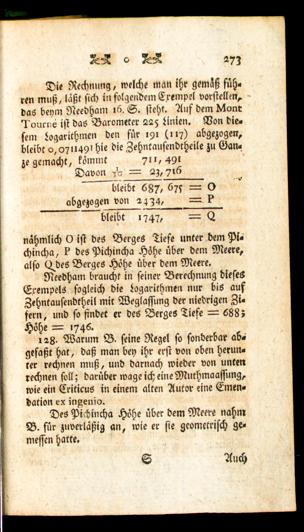 273
Die Rechnung, welche man ihr gemäß füh-
ren muß, läßt sich in folgendem Exempel vorstellen,
das beym Needham 16. S. steht. Auf dem Mont
Tourne ist das Barometer 225 Linien. Von die-
sem Logarithmen den für 191 (117) abgezogen,
bleibt 0,0711491 die die Zehntausendtheile zu Gan-
ze gemacht, kömmt 711, 491
Davon 1/30 = 23,716
bleibt 687, 675 = O
abgezogen von 2434, = P
bleibt 1747, = Q
nähmlich O ist des Berges Tiefe unter dem Pi-
chincha, P des Pichincha Höhe über dem Meere,
also Q des Berges Höhe über dem Meere.
Needham braucht in seiner Berechnung dieses
Exempels sogleich die Logarithmen nur bis auf
Zehntausendtheil mit Weglassung der niedrigen Zi-
fern, und so findet er des Berges Tiefe = 688;
Höhe = 1746.
128. Warum B. seine Regel so sonderbar ab-
gefaßt hat, daß man bey ihr erst von oben herun-
ter rechnen muß, und darnach wieder von unten
rechnen soll; darüber wage ich eine Muthmaassung,
wie ein Criticus in einem alten Autor eine Emen-
dation ex ingenio.
Des Pichincha Höhe über dem Meere nahm
B. für zuverläßig an, wie er sie geometrisch ge-
messen hatte.
S Auch